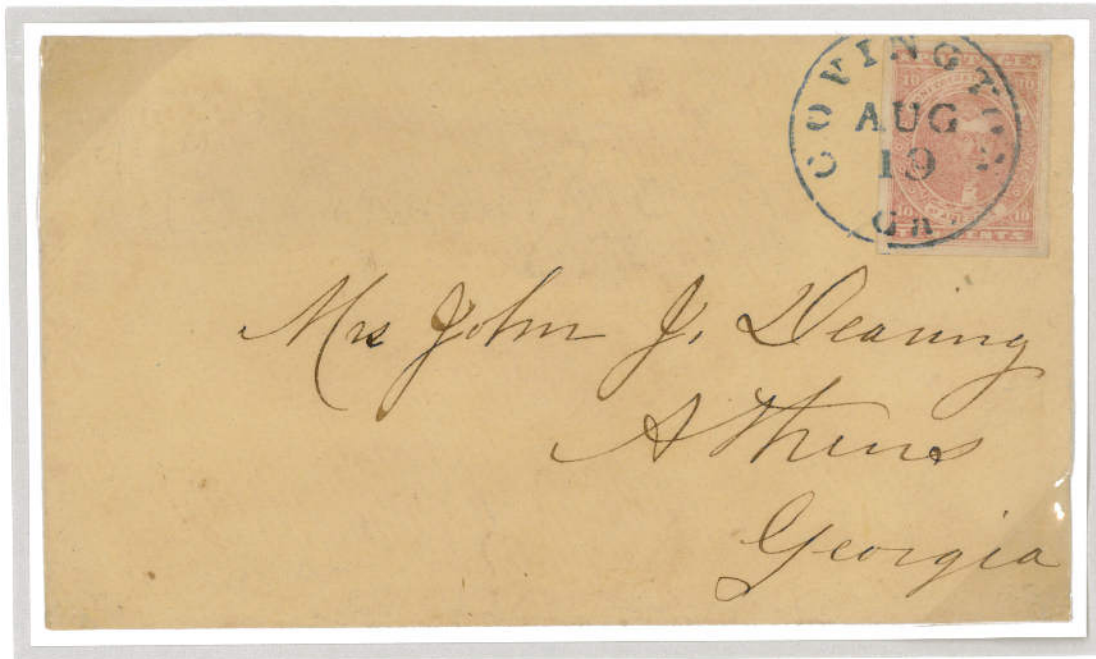 COVINGTON
AUG
19
Ga
POSTAGE
10 10
10 10
TEN CENTS
Mrs John J. Dearing
Athens
Georgia